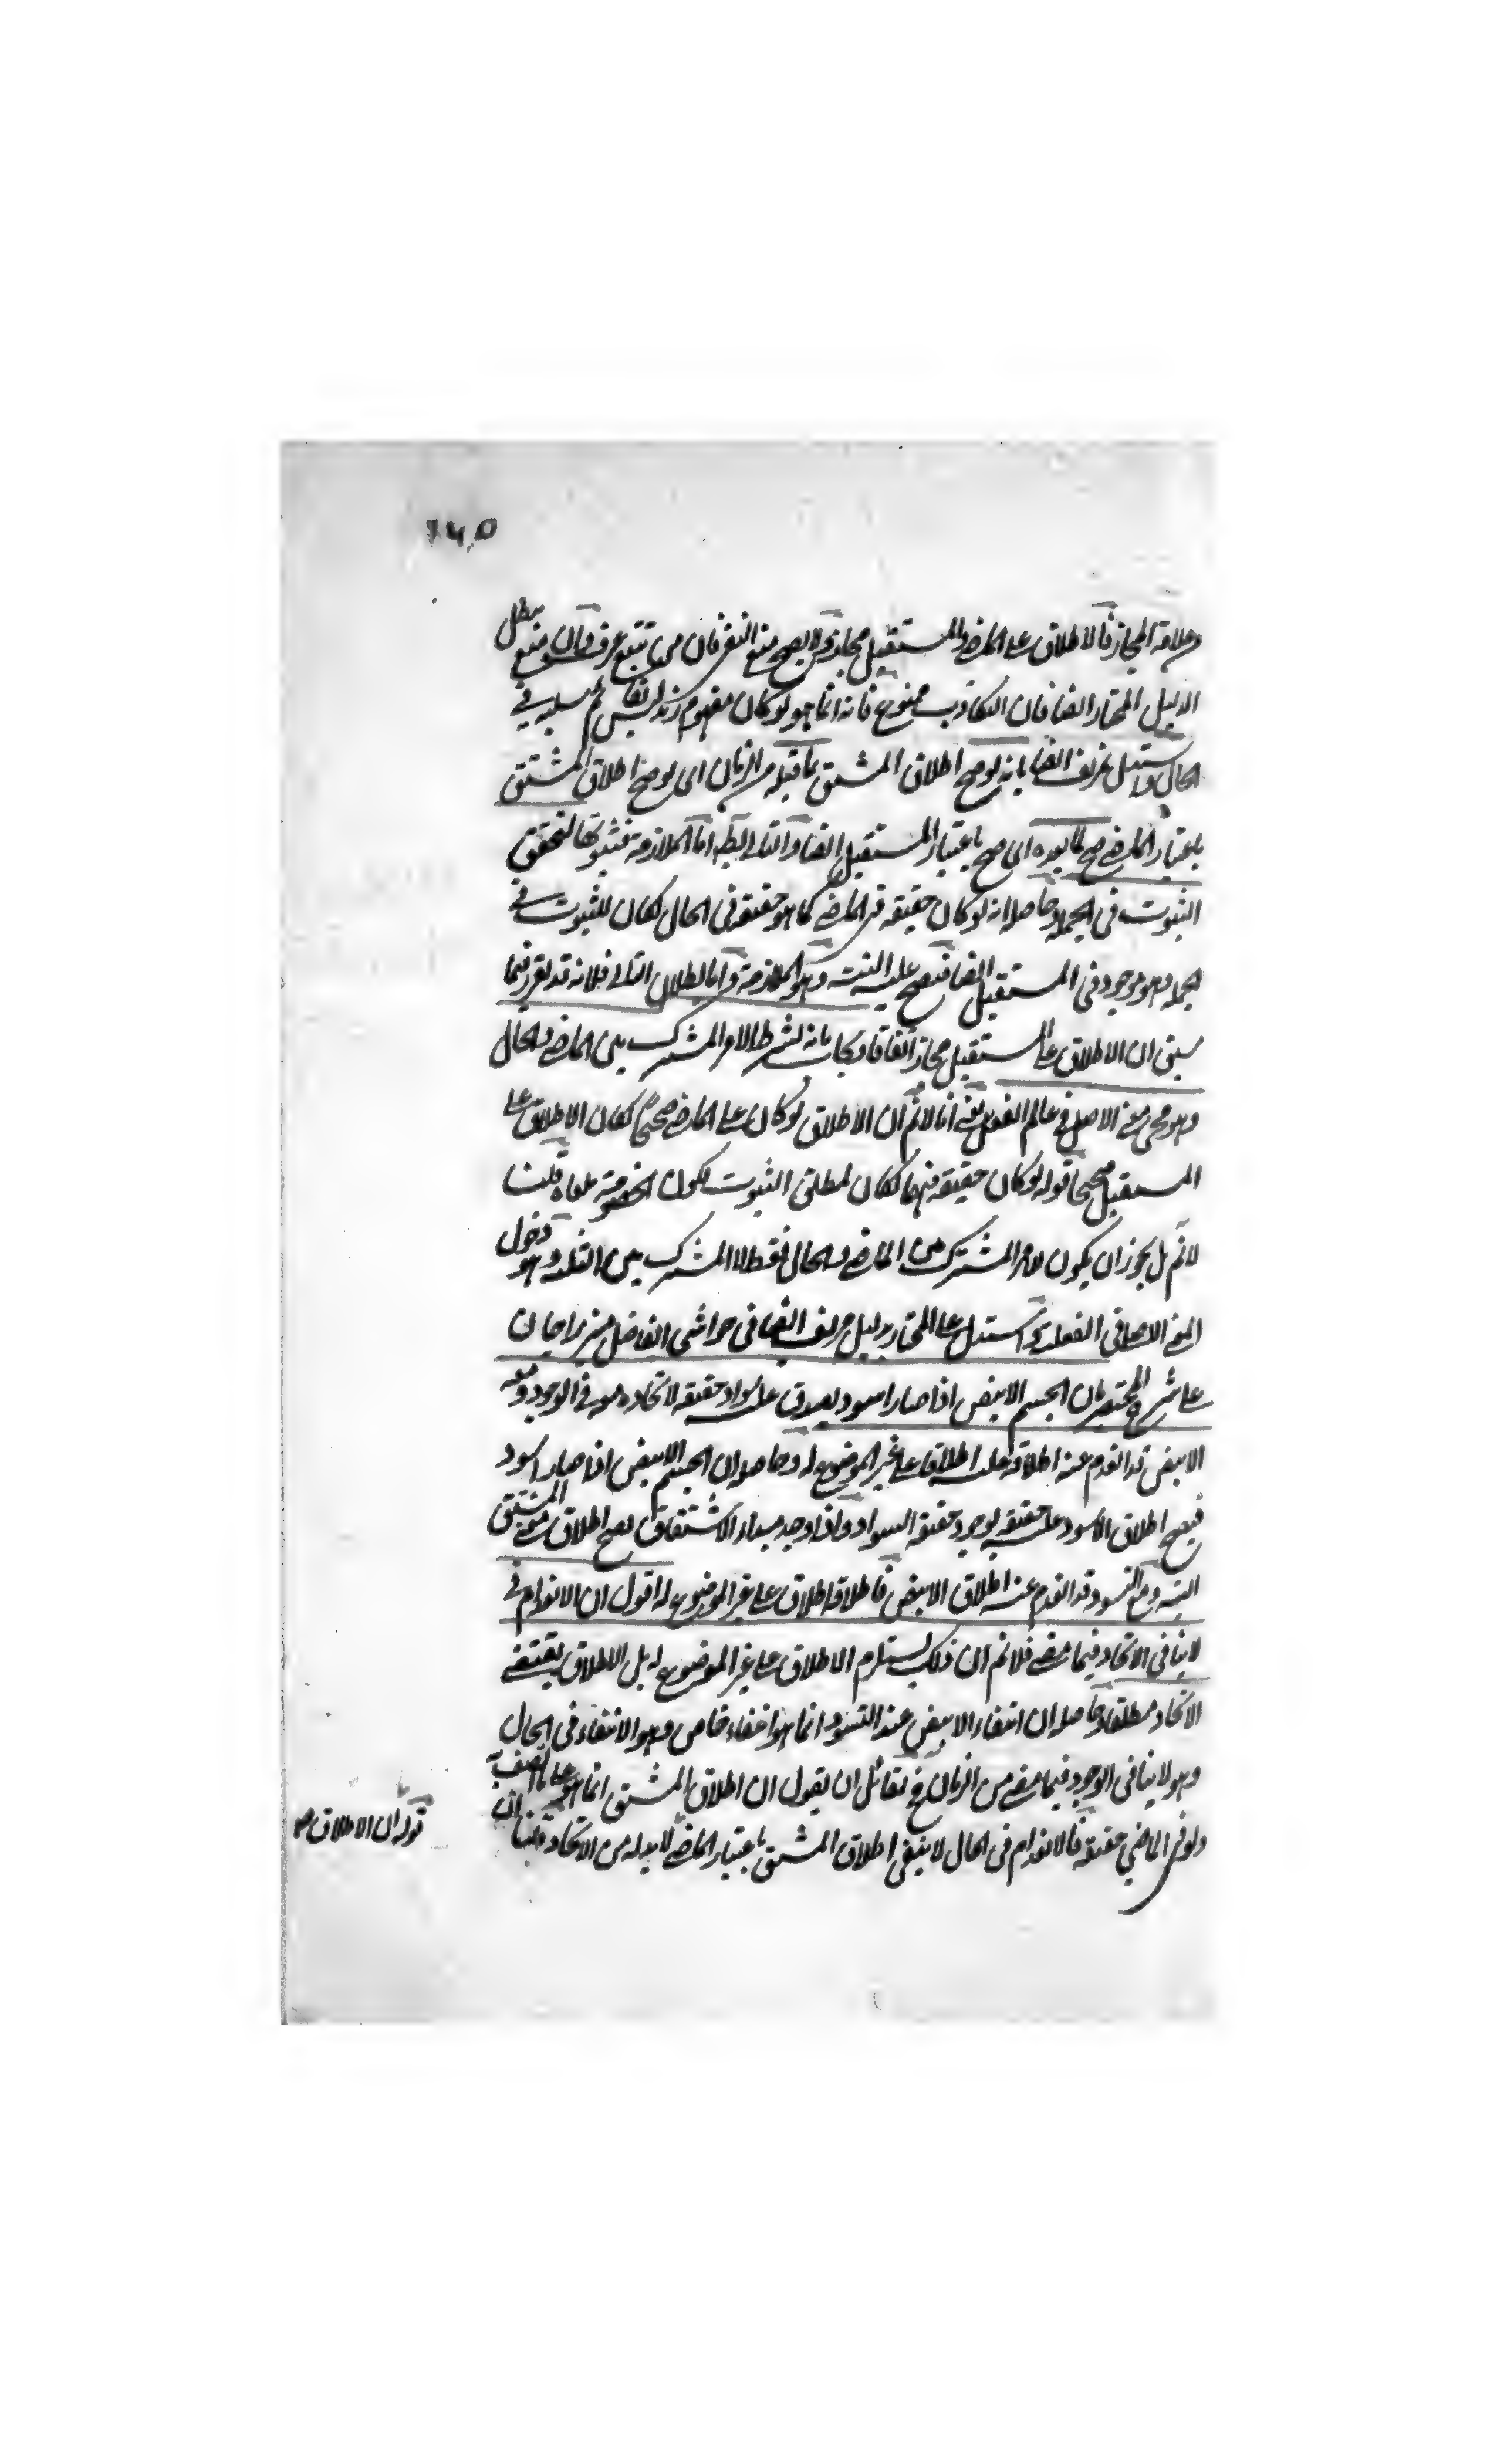 وعلاقة المجاز فالاطلاق على الماضي والمستقبل مجازي ولا يصح منع النفي فان من تتبع عرف وان منع بطل
الدليل المختار ايضا فان التكاذب ممنوع فانه انما هو لو كان مفهوم زيد ليس بقائم سلبه في
الحال واستدل مزيف ايضا بانه لو صح اطلاق المشتق بما قبله من الزمان اى لو صح اطلاق المشتق
باعتبار الماضي صح لما بعده اى صح باعتبار المستقبل ايضا والتالى بط اما الملازمة فثبوتها لتحقق
الثبوت فى الجملة وحاصله انه لو كان حقيقة فى الماضي كما هو حقيقة فى الحال لكان للثبوت فى
الجملة وهو موجود فى المستقبل ايضا فيصح عليه البتة وهو الملازمة واما بطلان التالى فلانه قد تقرر فيما
سبق ان الاطلاق على المستقبل مجاز اتفاقا ويجاب بانه لشرط الامر المشترك بين الماضي والحال
وهو معنى الاصل فى عالم الفعل يعنى انا لا نم ان الاطلاق لو كان على الماضي صحيحا لكان الاطلاق على
المستقبل صحيحا قوله لو كان حقيقة فيهما لكان لمطلق الثبوت لكون الخصوصية ملغاة قلنا
لا نم بل يجوز ان يكون للامر المشترك بين الماضي والحال فقط لا المشترك بين الثلاثة وهو دخول
المعنى الاصلى فى الفعلية واستدل على المختار بدليل مزيف ايضا فى حواشى الفاضل ميرزا جان
على شرح المختصر بان الجسم الابيض اذا صار اسود يصدق عليه اسود حقيقة لاتحاده معه فى الوجود ومعه
الابيض قد انعدم عنه اطلاقه عليه اطلاق على غير الموضوع له وحاصله ان الجسم الابيض اذا صار اسود
فيصح اطلاق الاسود عليه حقيقة لوجود حقيقة السواد واذا وجد مبداء الاشتقاق يصح اطلاق المشتق
البتة ومع التسود قد انعدم عنه اطلاق الابيض فاطلاقه اطلاق على غير الموضوع له اقول ان الانعدام فى
لا ينافى الاتحاد فيما مضى فلا نم ان ذلك يستلزم الاطلاق على غير الموضوع له بل الاطلاق يقتضى
الاتحاد مطلقا وحاصله ان انتفاء الابيض عند التسود انما هو انتفاء خاص وهو الانتفاء فى الحال
وهو لا ينافى الوجود فيما مضى من الزمان فح لقائل ان يقول ان اطلاق المشتق انما هو على ما اتصف به
ولو فى الماضي حقيقة فالانعدام فى الحال لا ينفى اطلاق المشتق باعتبار الماضي لا بد له من الاتحاد قلنا
قوله ان الاطلاق